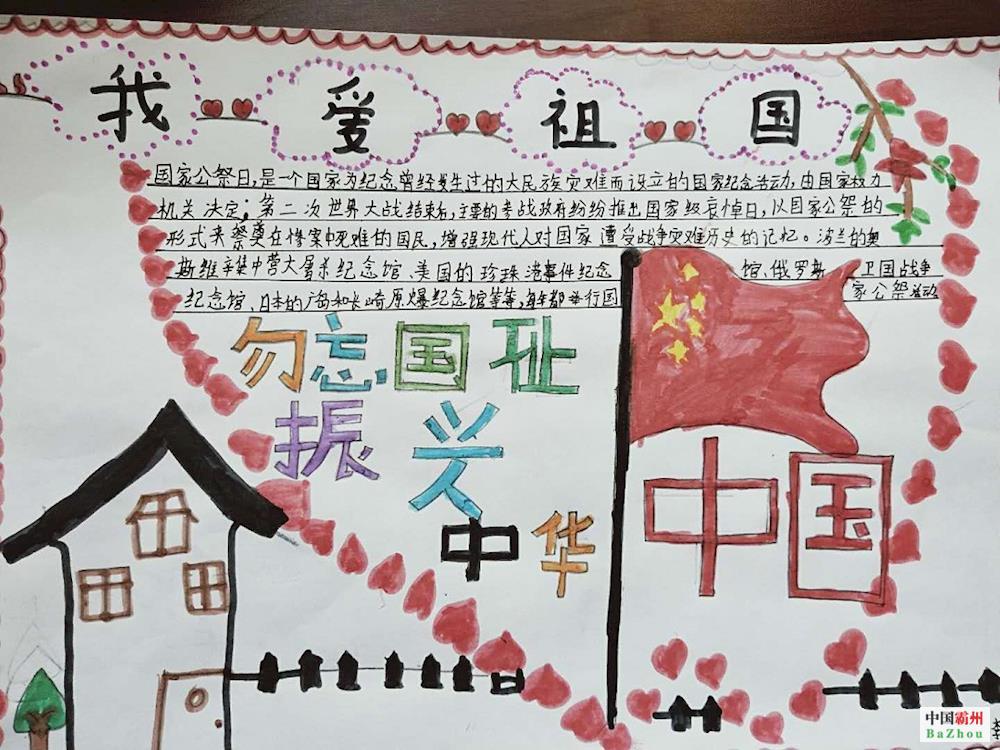 我爱祖国
国家公祭日,是一个国家为纪念曾经发生过的大民族灾难而设立的国家纪念活动,由国家权力
机关决定;第二次世界大战结束后,主要的参战政府纷纷推出国家级哀悼日,以国家公祭的
形式来祭奠在惨案中死难的国民,增强现代人对国家遭受战争灾难历史的记忆。波兰的奥
斯维辛集中营大屠杀纪念馆、美国的珍珠港事件纪念馆、俄罗斯卫国战争
纪念馆、日本的广岛和长崎原爆纪念馆等等,每年都举行国家公祭活动
勿忘国耻
振兴
中华
中国
中国霸州
BaZhou